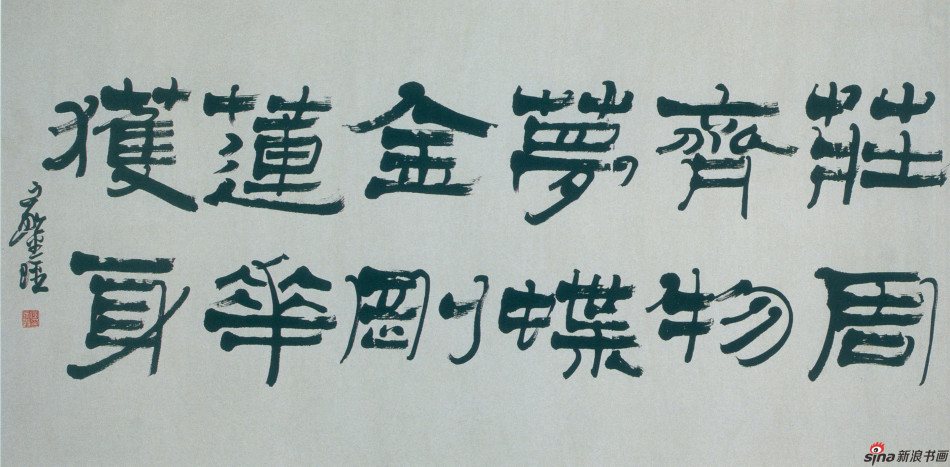 莊周
齊物
夢蝶
金剛
蓮華
獲身
sina新浪书画